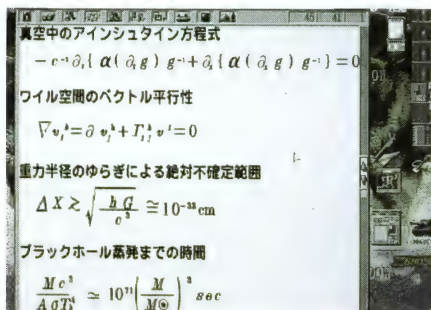 真空中のアインシュタイン方程式
− c⁻¹∂ₜ{ α( ∂ₜg ) g⁻¹+∂ᵢ{ α( ∂ᵢg ) g⁻¹}=0
ワイル空間のベクトル平行性
重力半径のゆらぎによる絶対不確定範囲
ΔX≳√(hG/c³) ≅10⁻³³cm
ブラックホール蒸発までの時間
Mc²/AσT⁴ ≃ 10⁷¹(M/M⊙)³ sec